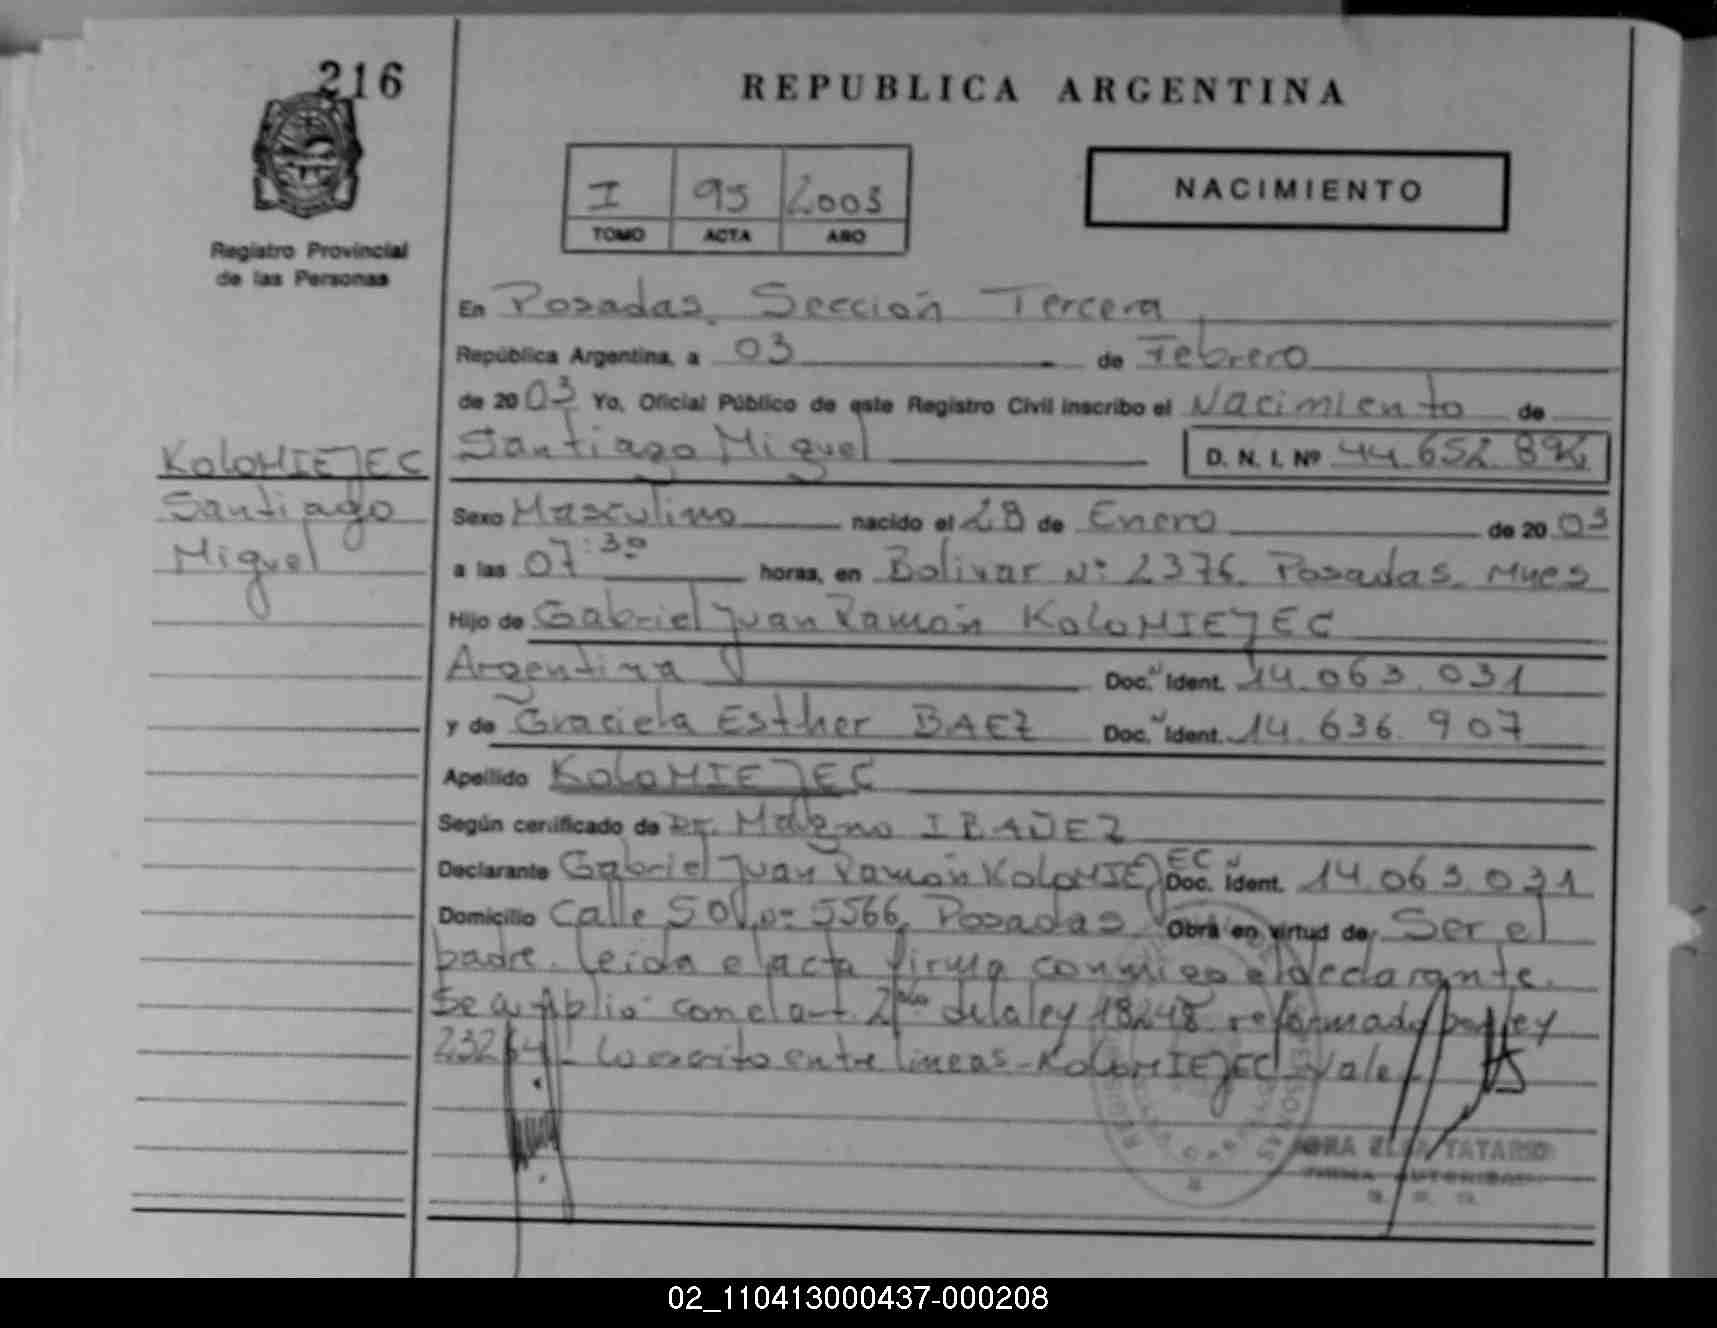 216
REPUBLICA ARGENTINA
I 95 2003
TOMO ACTA AÑO
NACIMIENTO
Registro Provincial
de las Personas
En Posadas, Sección Tercera
República Argentina, a 03 de Febrero
de 2003 Yo, Oficial Público de este Registro Civil inscribo el Nacimiento de
KOLOMIEJEC
Santiago
Miguel
Santiago Miguel D. N. I. Nº 44.652.894
Sexo Masculino nacido el 28 de Enero de 2003
a las 07:30 horas, en Bolivar Nº 2376. Posadas. Mnes
Hijo de Gabriel Juan Ramón KOLOMIEJEC
Argentina Doc. Ident. 14.063.031
y de Graciela Esther BAEZ Doc. Ident. 14.636.907
Apellido KOLOMIEJEC
Según certificado de Dr. Magno IBAÑEZ
Declarante Gabriel Juan Ramón KOLOMIEJEC Doc. Ident. 14.063.031
Domicilio Calle 50 Nº 5566, Posadas Obra en virtud de Ser el
padre. leída el acta firma conmigo el declarante.
Se amplió con el art. 2do de la ley 18248 reformado por ley
23264 - lo escrito entre lineas - KOLOMIEJEC Vale
TATARIN
02_110413000437-000208